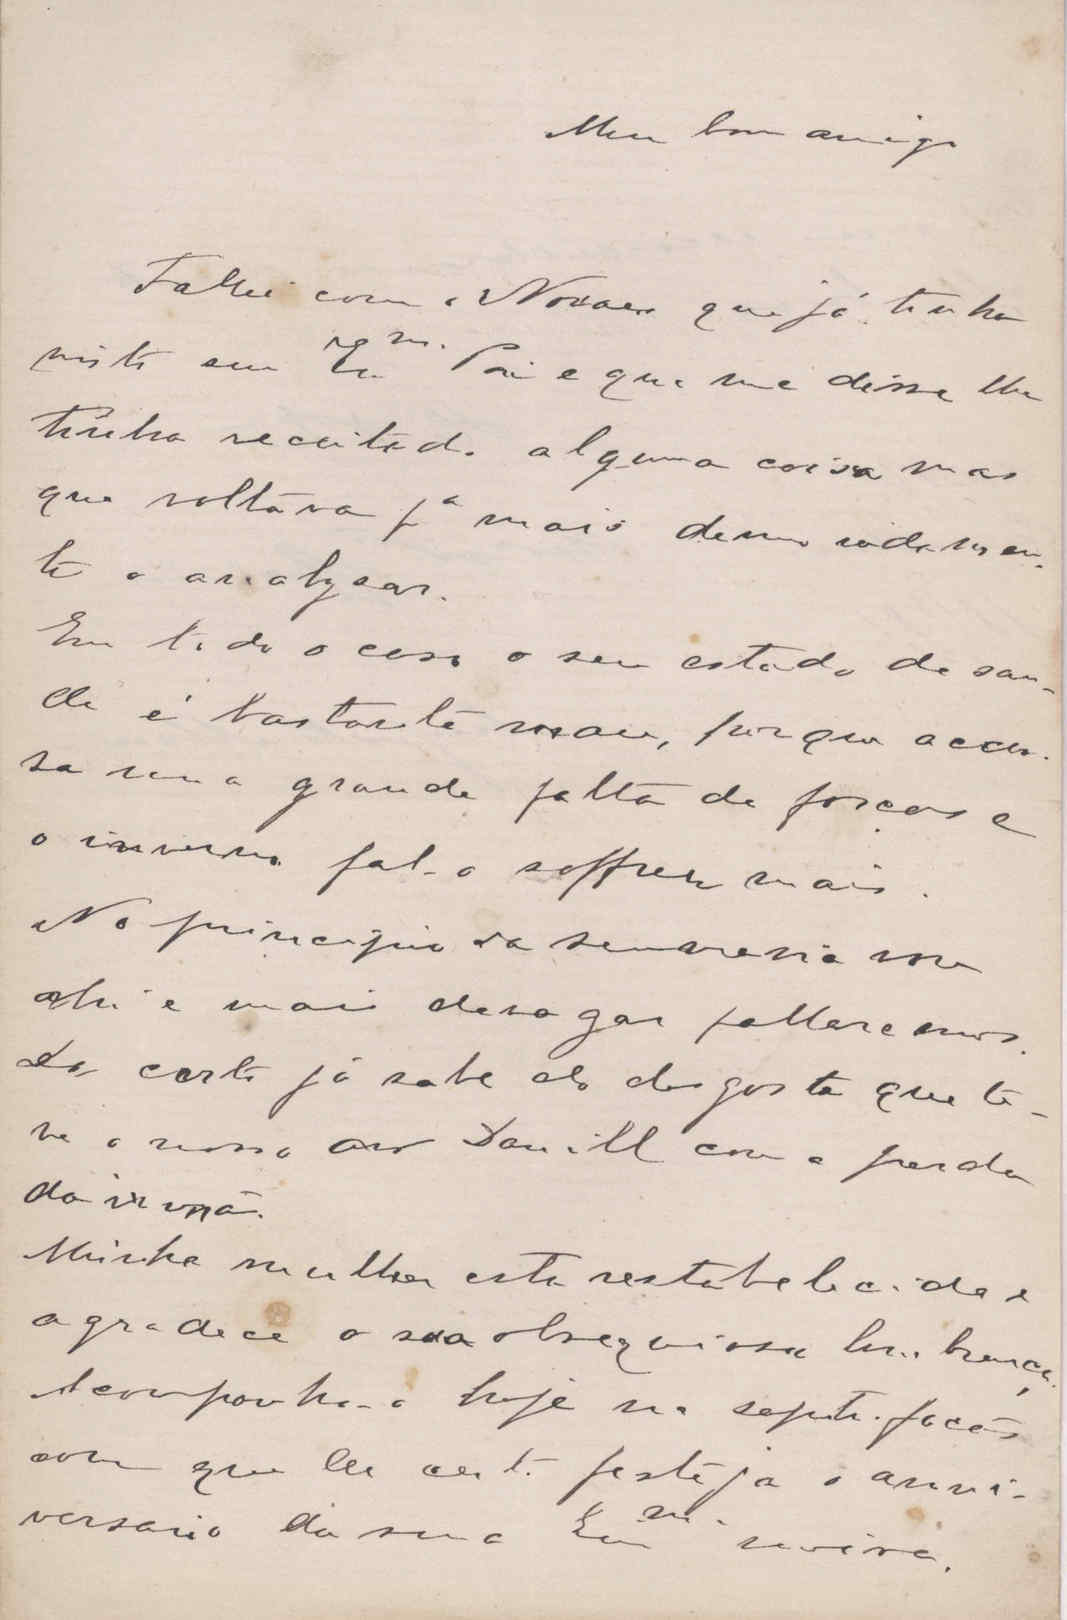 Meu bom amigo
Fallei com o Novaes que já tinha
visto seu Em Pai e que me disse lhe
tinha receitado alguma coisa mas
que voltava pª mais demoradamen-
te o analysar.
Em todo o caso o seu estado de sau-
de é bastante mau, porque accu-
sa uma grande falta de forças e
o inverno fal-o soffrer mais.
No principio da semana vou
ahi e mais devagar fallaremos.
De certo já sabe do desgosto que te-
ve o nosso Daniell com a perda
da irmã.
Minha mulher esta restabelecida e
agradece a sua obsequiosa lembrança.
Acompanho-o hoje na satisfação
com que de certo festeja o anni-
versario da sua Emª noiva.